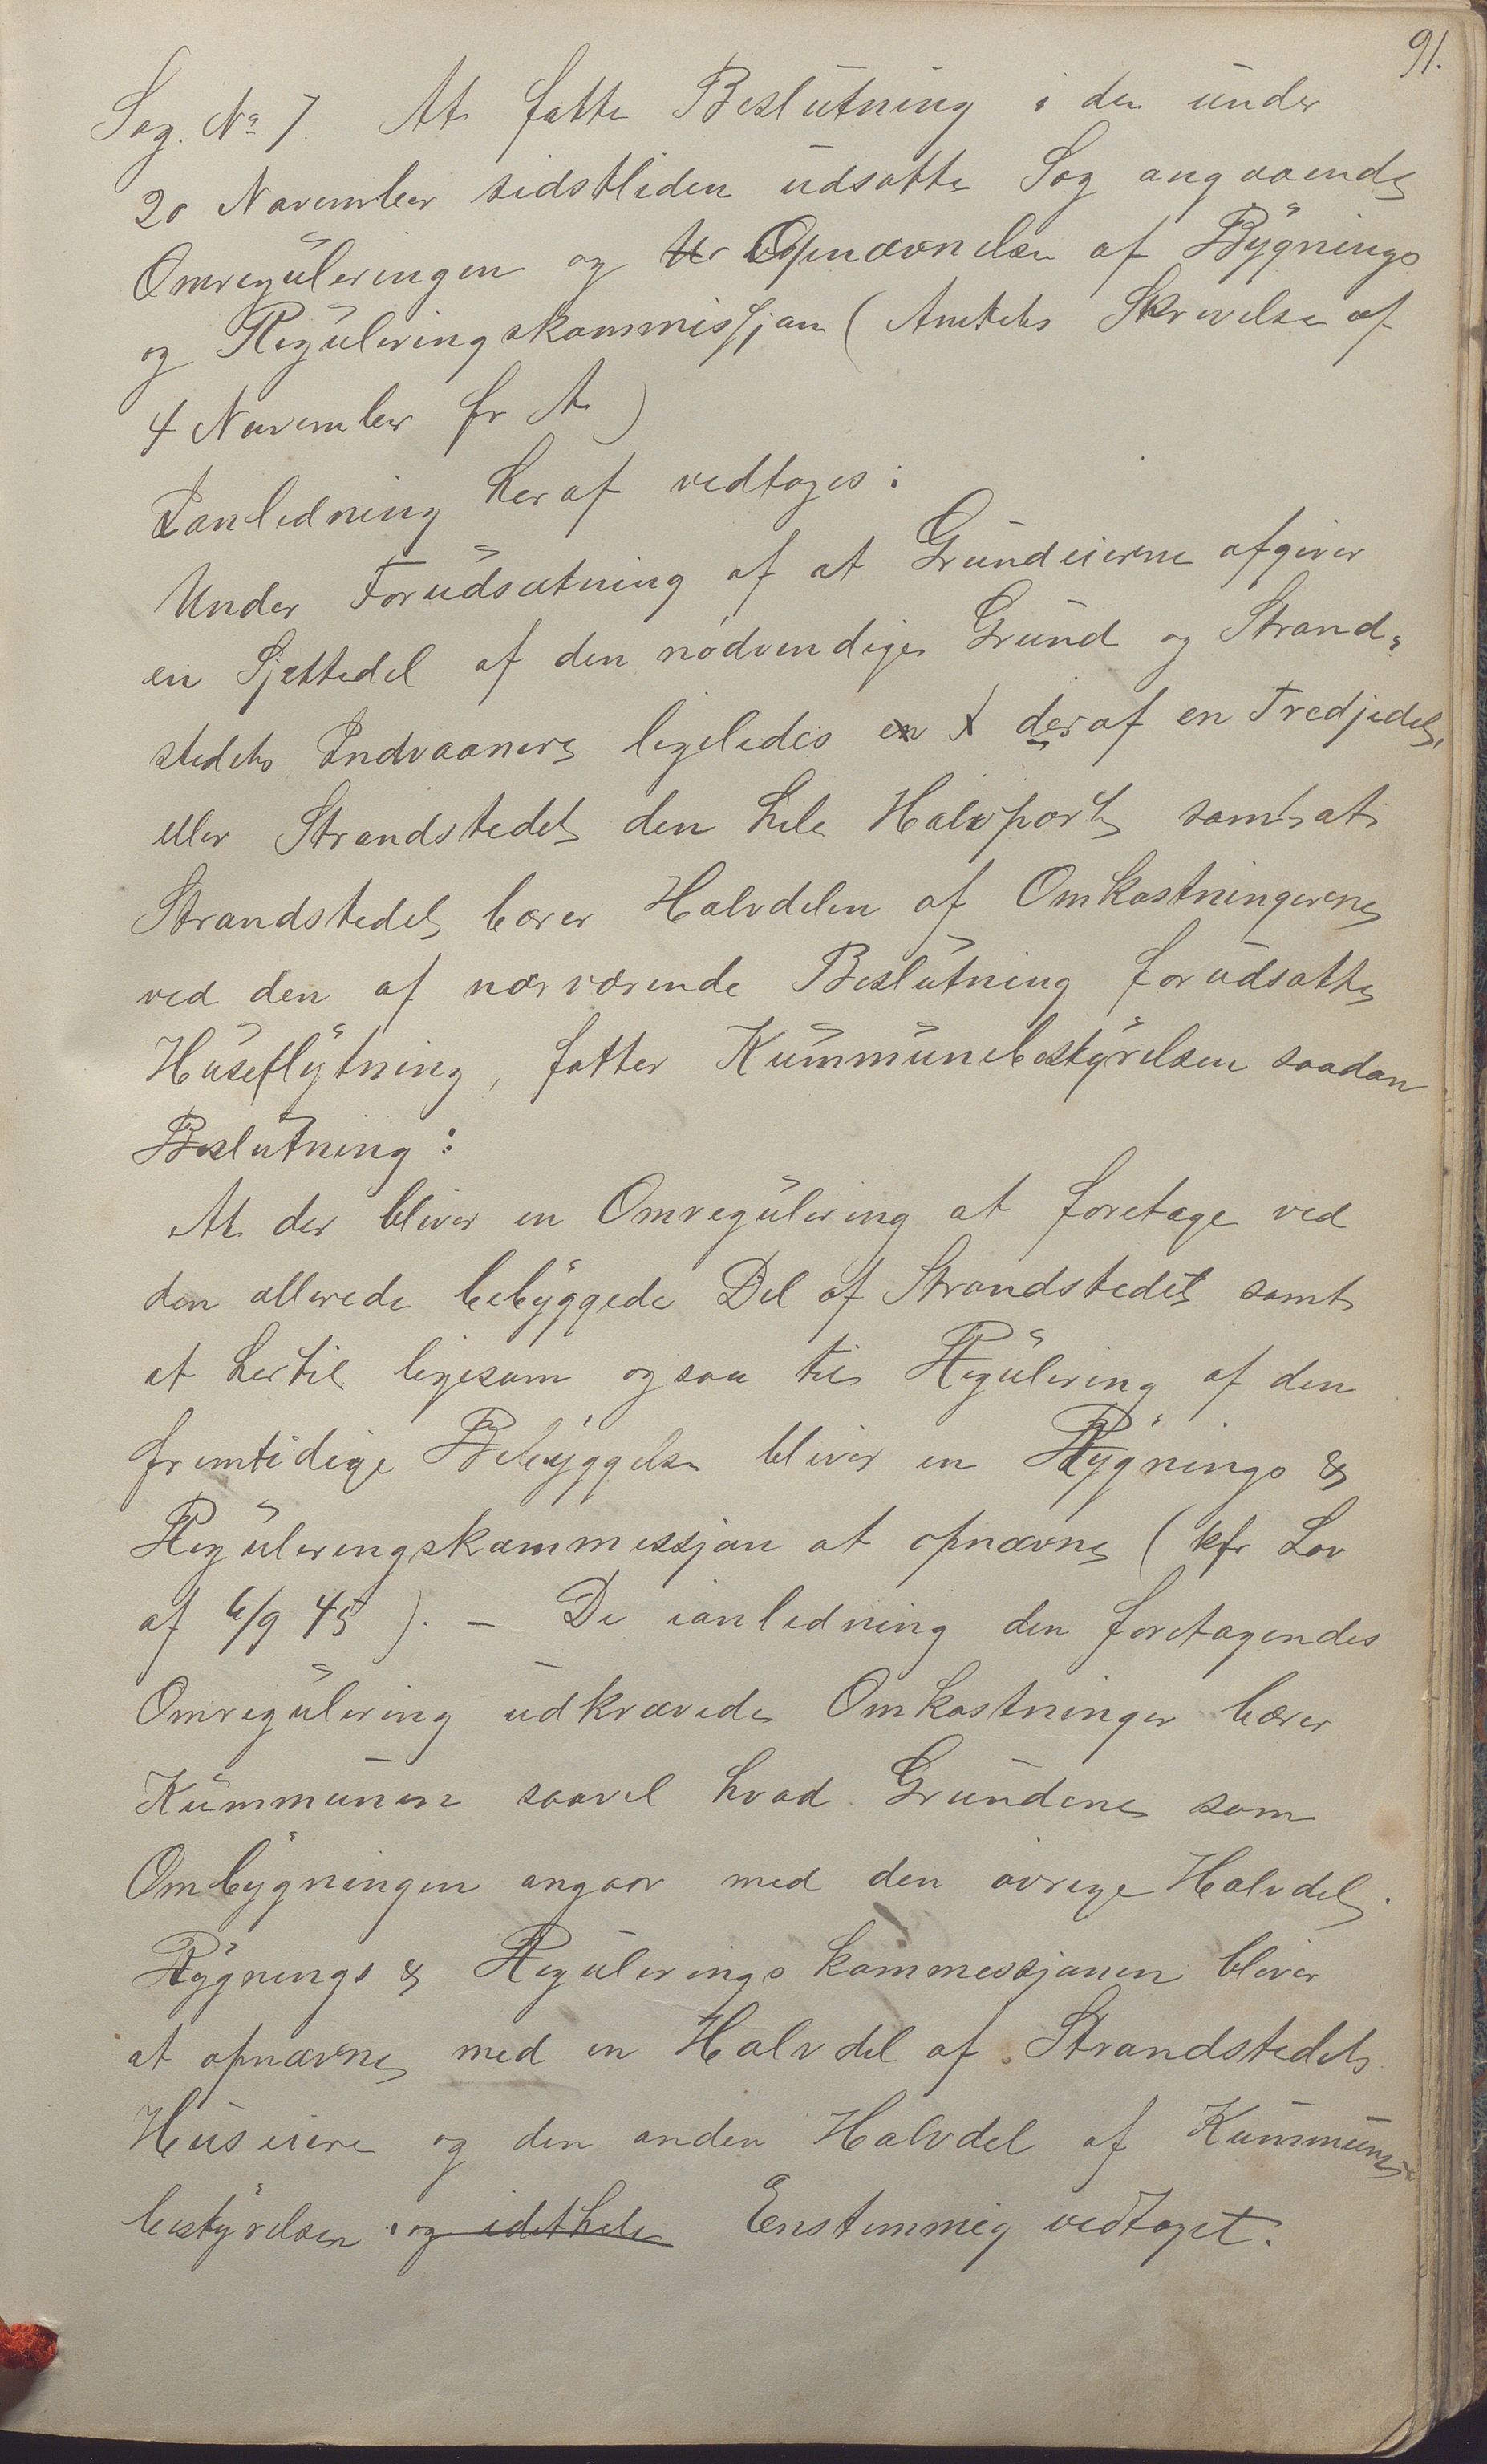 91.
Sag. No 7. At fatte Beslutning i den under
20 November sidstleden udsatte Sag angaaende
Omreguleringen og Opnævnelse af Bygnings
og Reguleringskommissjon (Amtets Skrivelse af
4 November fr A)
Ianledning heraf vedtages:
Under Forudsætning af at Grundeierne afgiver
en Sjettedel af den nødvendige Grund og Strand-
stedets Indvaanere ligeledes deraf en Tredjedel,
eller Strandstedet den hele Halvpart samt at
Strandstedet bærer Halvdelen af Omkostningerne
ved den af nærværende Beslutning forudsatte
Huseflytning, fatter Kummunebestyrelsen saadan
Beslutning:
At der bliver en Omregulering at foretage ved
den allerede bebyggede Del af Strandstedet samt
at hertil ligesom ogsaa til Regulering af den
fremtidige Bebyggelse bliver en Bygnings &
Reguleringskommissjon at opnævne (kfr Lov
af 6/9 45). - De ianledning den foretagendes
Omregulering udkrævede Omkostninger bærer
Kummunen saavel hvad Grundene som
Ombygningen angaar med den øvrige Halvdel.
Bygnings & Regulerings kommissjonen bliver
at opnævne med en Halvdel af Strandstedets
Huseiere og den anden Halvdel af Kummune
bestyrelsen og idethele Enstemmig vedtaget.